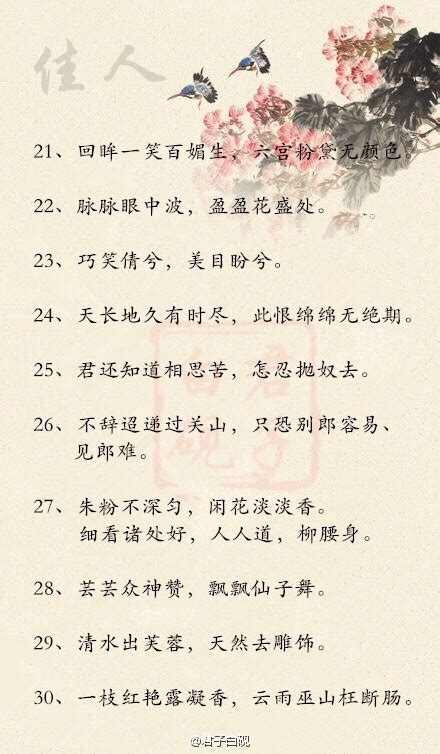 佳人
21、回眸一笑百媚生，六宫粉黛无颜色。
22、脉脉眼中波，盈盈花盛处。
23、巧笑倩兮，美目盼兮。
24、天长地久有时尽，此恨绵绵无绝期。
25、君还知道相思苦，怎忍抛奴去。
26、不辞迢递过关山，只恐别郎容易、
见郎难。
27、朱粉不深匀，闲花淡淡香。
细看诸处好，人人道，柳腰身。
28、芸芸众神赞，飘飘仙子舞。
29、清水出芙蓉，天然去雕饰。
30、一枝红艳露凝香，云雨巫山枉断肠。
君子
白砚
@君子白砚